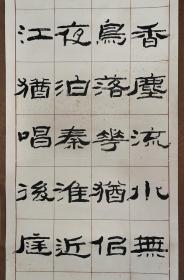 香塵流水無
鳥落華猶佀
夜泊秦淮近
江猶唱後庭